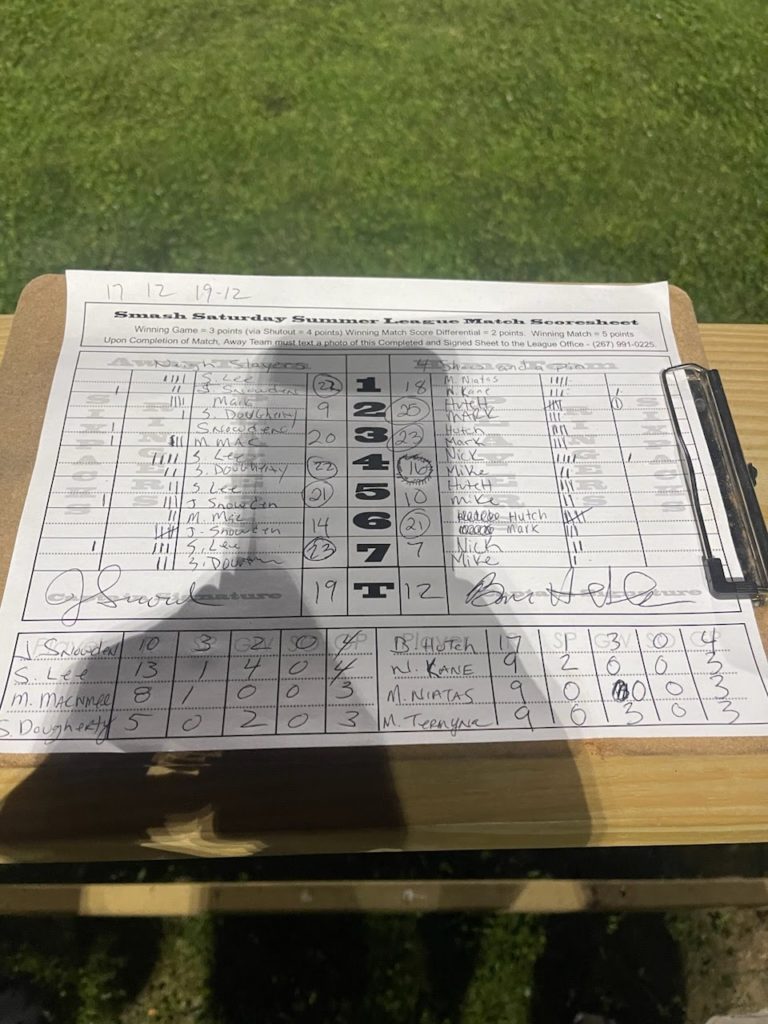 17 12 19-12
Smash Saturday Summer League Match Scoresheet
Winning Game = 3 points (via Shutout = 4 points) Winning Match Score Differential = 2 points. Winning Match = 5 points
Upon Completion of Match, Away Team must text a photo of this Completed and Signed Sheet to the League Office - (267) 991-0225.
S. Lee 22 1 18 M. Niatas
J Snowden N. Kane
Mark 9 2 25 Hutch
S. Dougherty Mark
Snowden 20 3 23 Hutch
M MAC Mark
S. Lee 22 4 16 Nick
S. Dougherty Mike
S Lee 21 5 10 Hutch
J Snowden Mike
M. Mac 14 6 21 Hutch
J. Snowden Mark
S. Lee 23 7 7 Nick
Mike
19 T 12
J Snowden 10 3 2 0 4 B Hutch 17 3 0 4
S. Lee 13 1 4 0 4 N. KANE 9 2 0 0 3
8 1 0 0 3 M. NIATAS 9 0 0 0 3
S. Dougherty 5 0 2 0 3 9 0 3 0 3